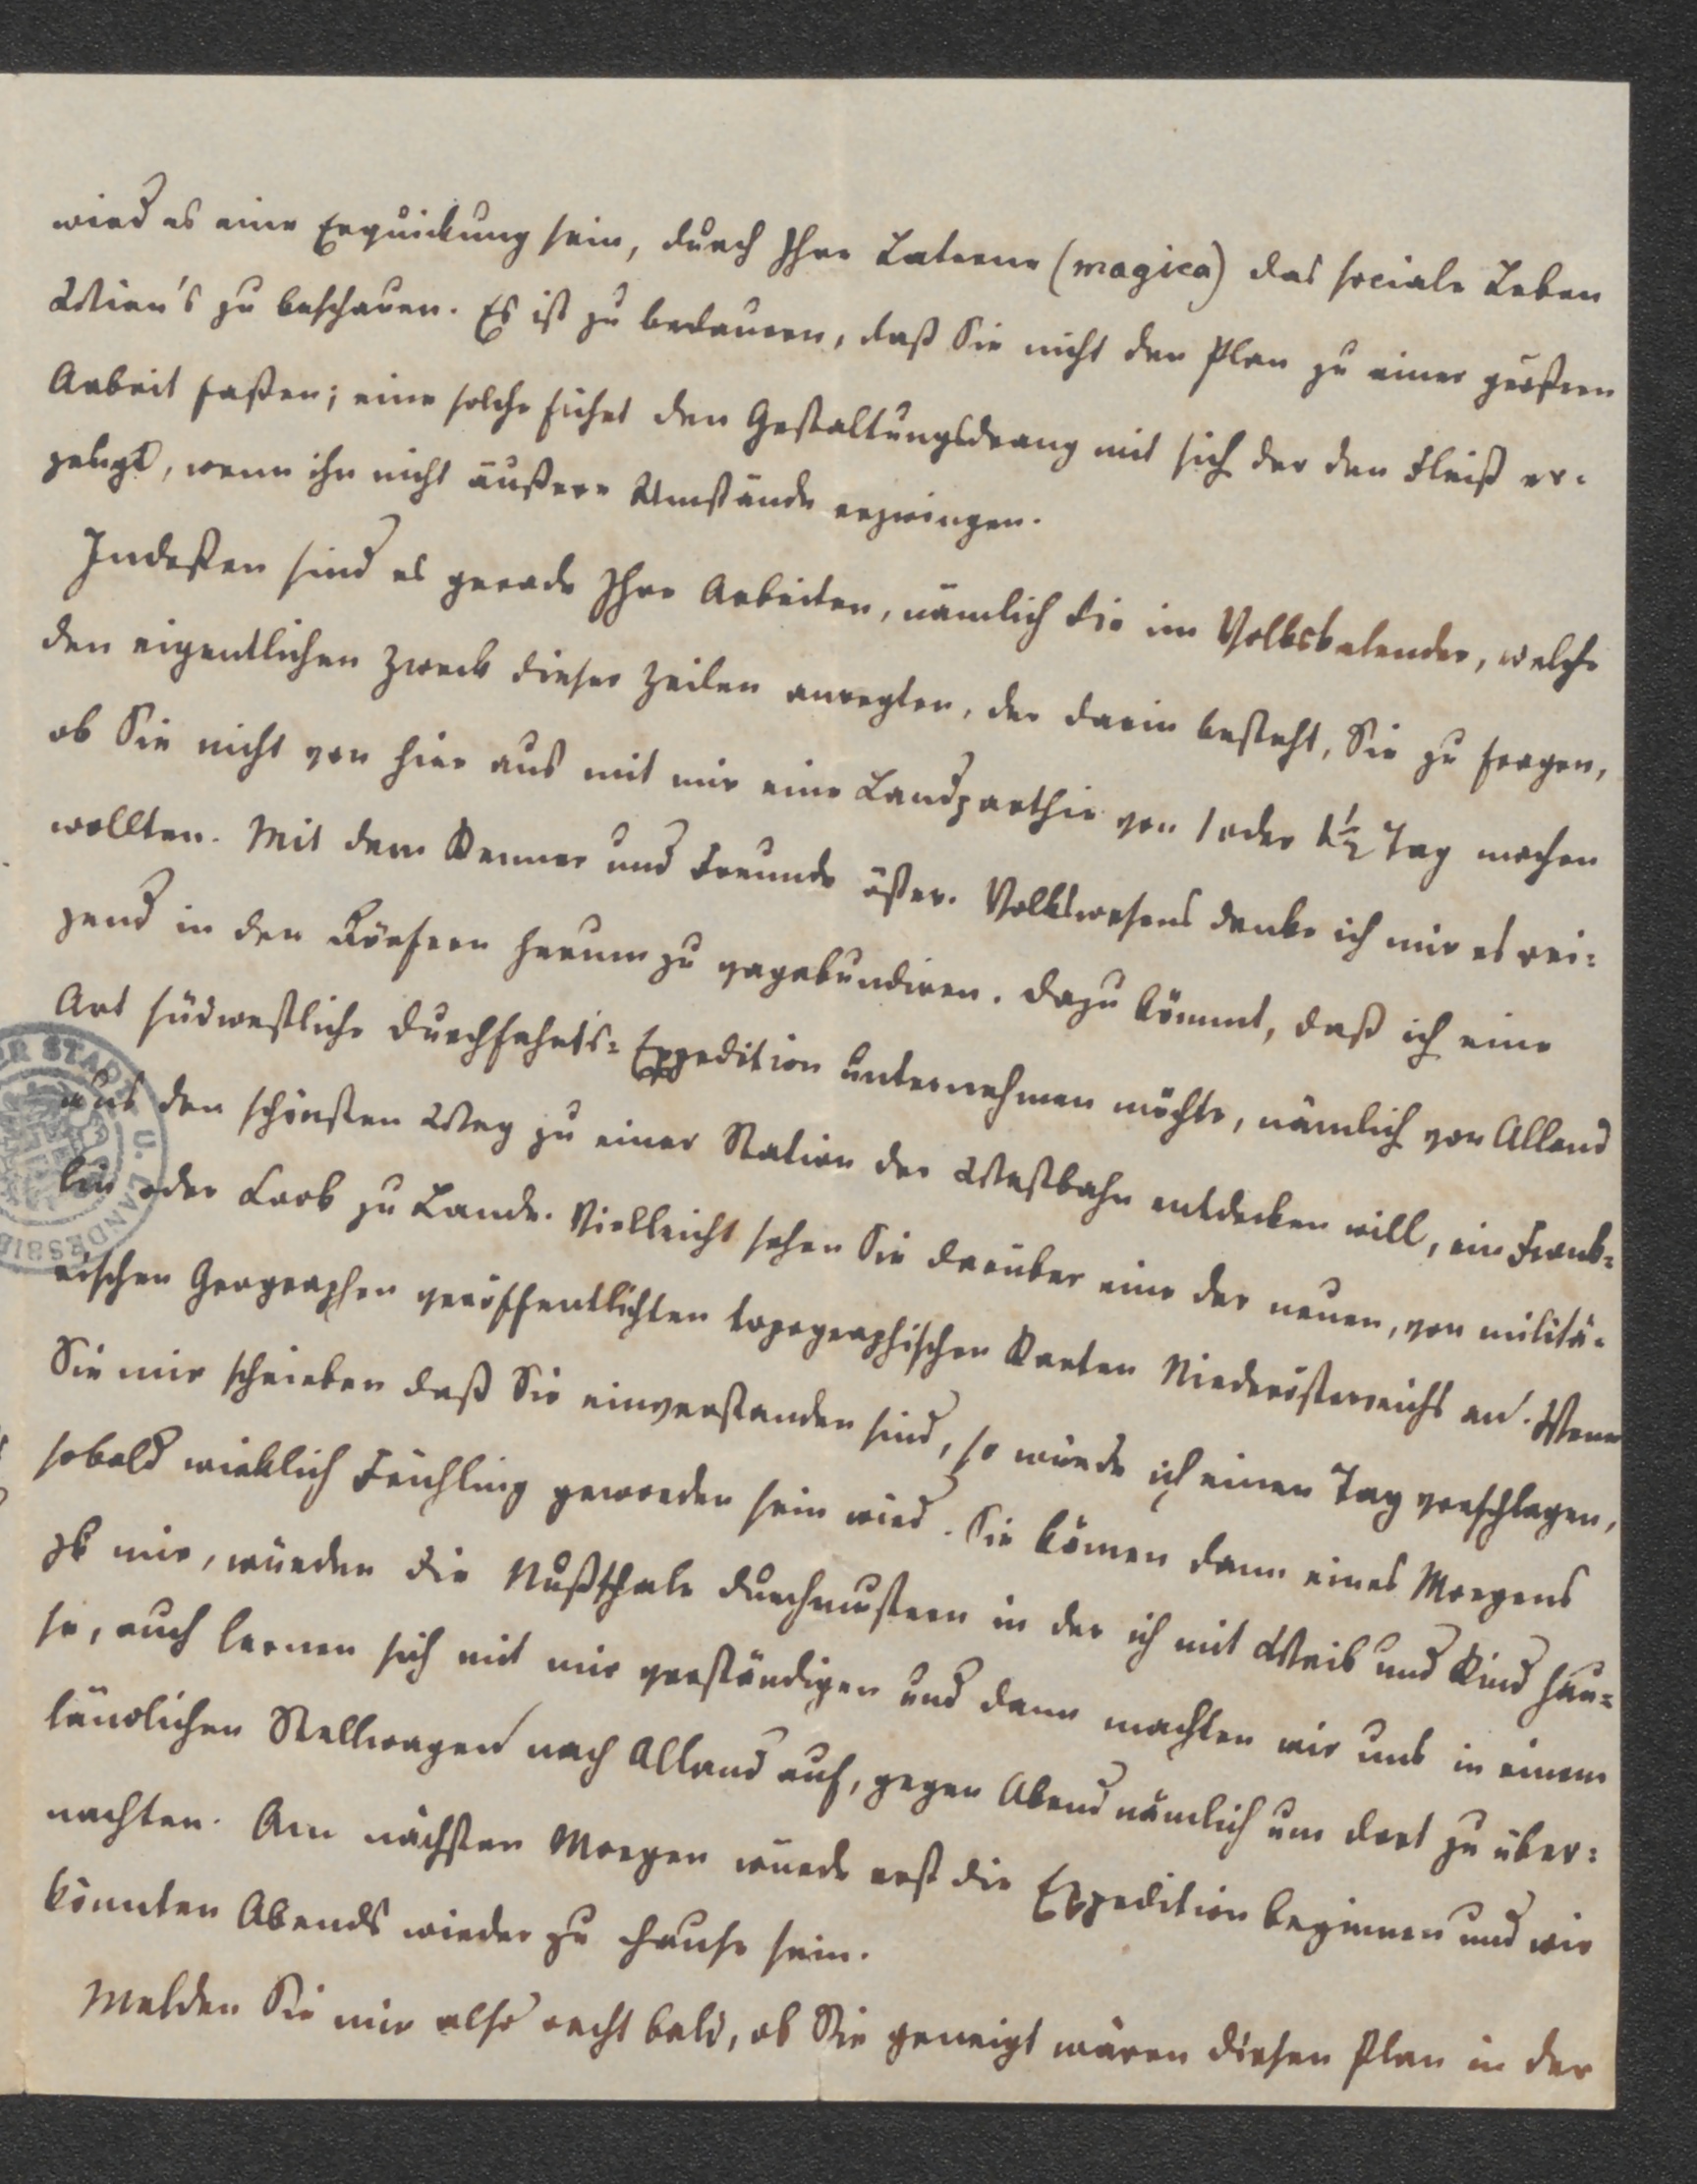 wird es eine Erquickung sein, durch Ihre Laterne (magica) das sociale Leben
Wien's zu beschauen. Es ist zu bedauern, daß Sie nicht den Plan zu einer größern
Arbeit faßen; eine solche führt den Gestaltungsdrang mit sich der den Fleiß er-
zeugt, wenn ihn nicht äußere Umstände erzwingen.
Indeßen sind es gerade Ihre Arbeiten, nämlich die im Volkskalender, welche
den eigentlichen Zweck dieser Zeilen anregten, der darin besteht, Sie zu fragen,
ob Sie nicht von hier aus mit mir eine Landparthie von 1 oder 1½ Tag machen
wollten. Mit dem Kenner und Freunde öster. Volkswesens denke ich mir es rei-
zend in den Dörfern herum zu vagabundiren. Dazu kömmt, daß ich eine
Art südwestliche Durchfahrts-Expedition unternehmen möchte, nämlich von Alland
aus den schönsten Weg zu einer Station der Westbahn entdecken will, ein Frank-
lin oder Cook zu Lande. Vielleicht sehen Sie darüber eine der neuen, von militä-
rischen Geographen veröffentlichten topographischen Karten Niederösterreichs an. Wenn
Sie mir schrieben daß Sie einverstanden sind, so würde ich einen Tag vorschlagen,
sobald wirklich Frühling geworden sein wird. Sie kämen dann eines Morgens
zu mir, würden die Nußschale durchmustern in der ich mit Weib und Kind hau-
se, auch lernen sich mit mir verständigen und dann machten wir uns in einem
ländlichen Stellwagen nach Alland auf, gegen Abend nämlich um dort zu über-
nachten. Am nächsten Morgen würde erst die Expedition beginnen und wir
könnten Abends wieder zu Hause sein.
Melden Sie mir also recht bald, ob Sie geneigt wären diesen Plan in der